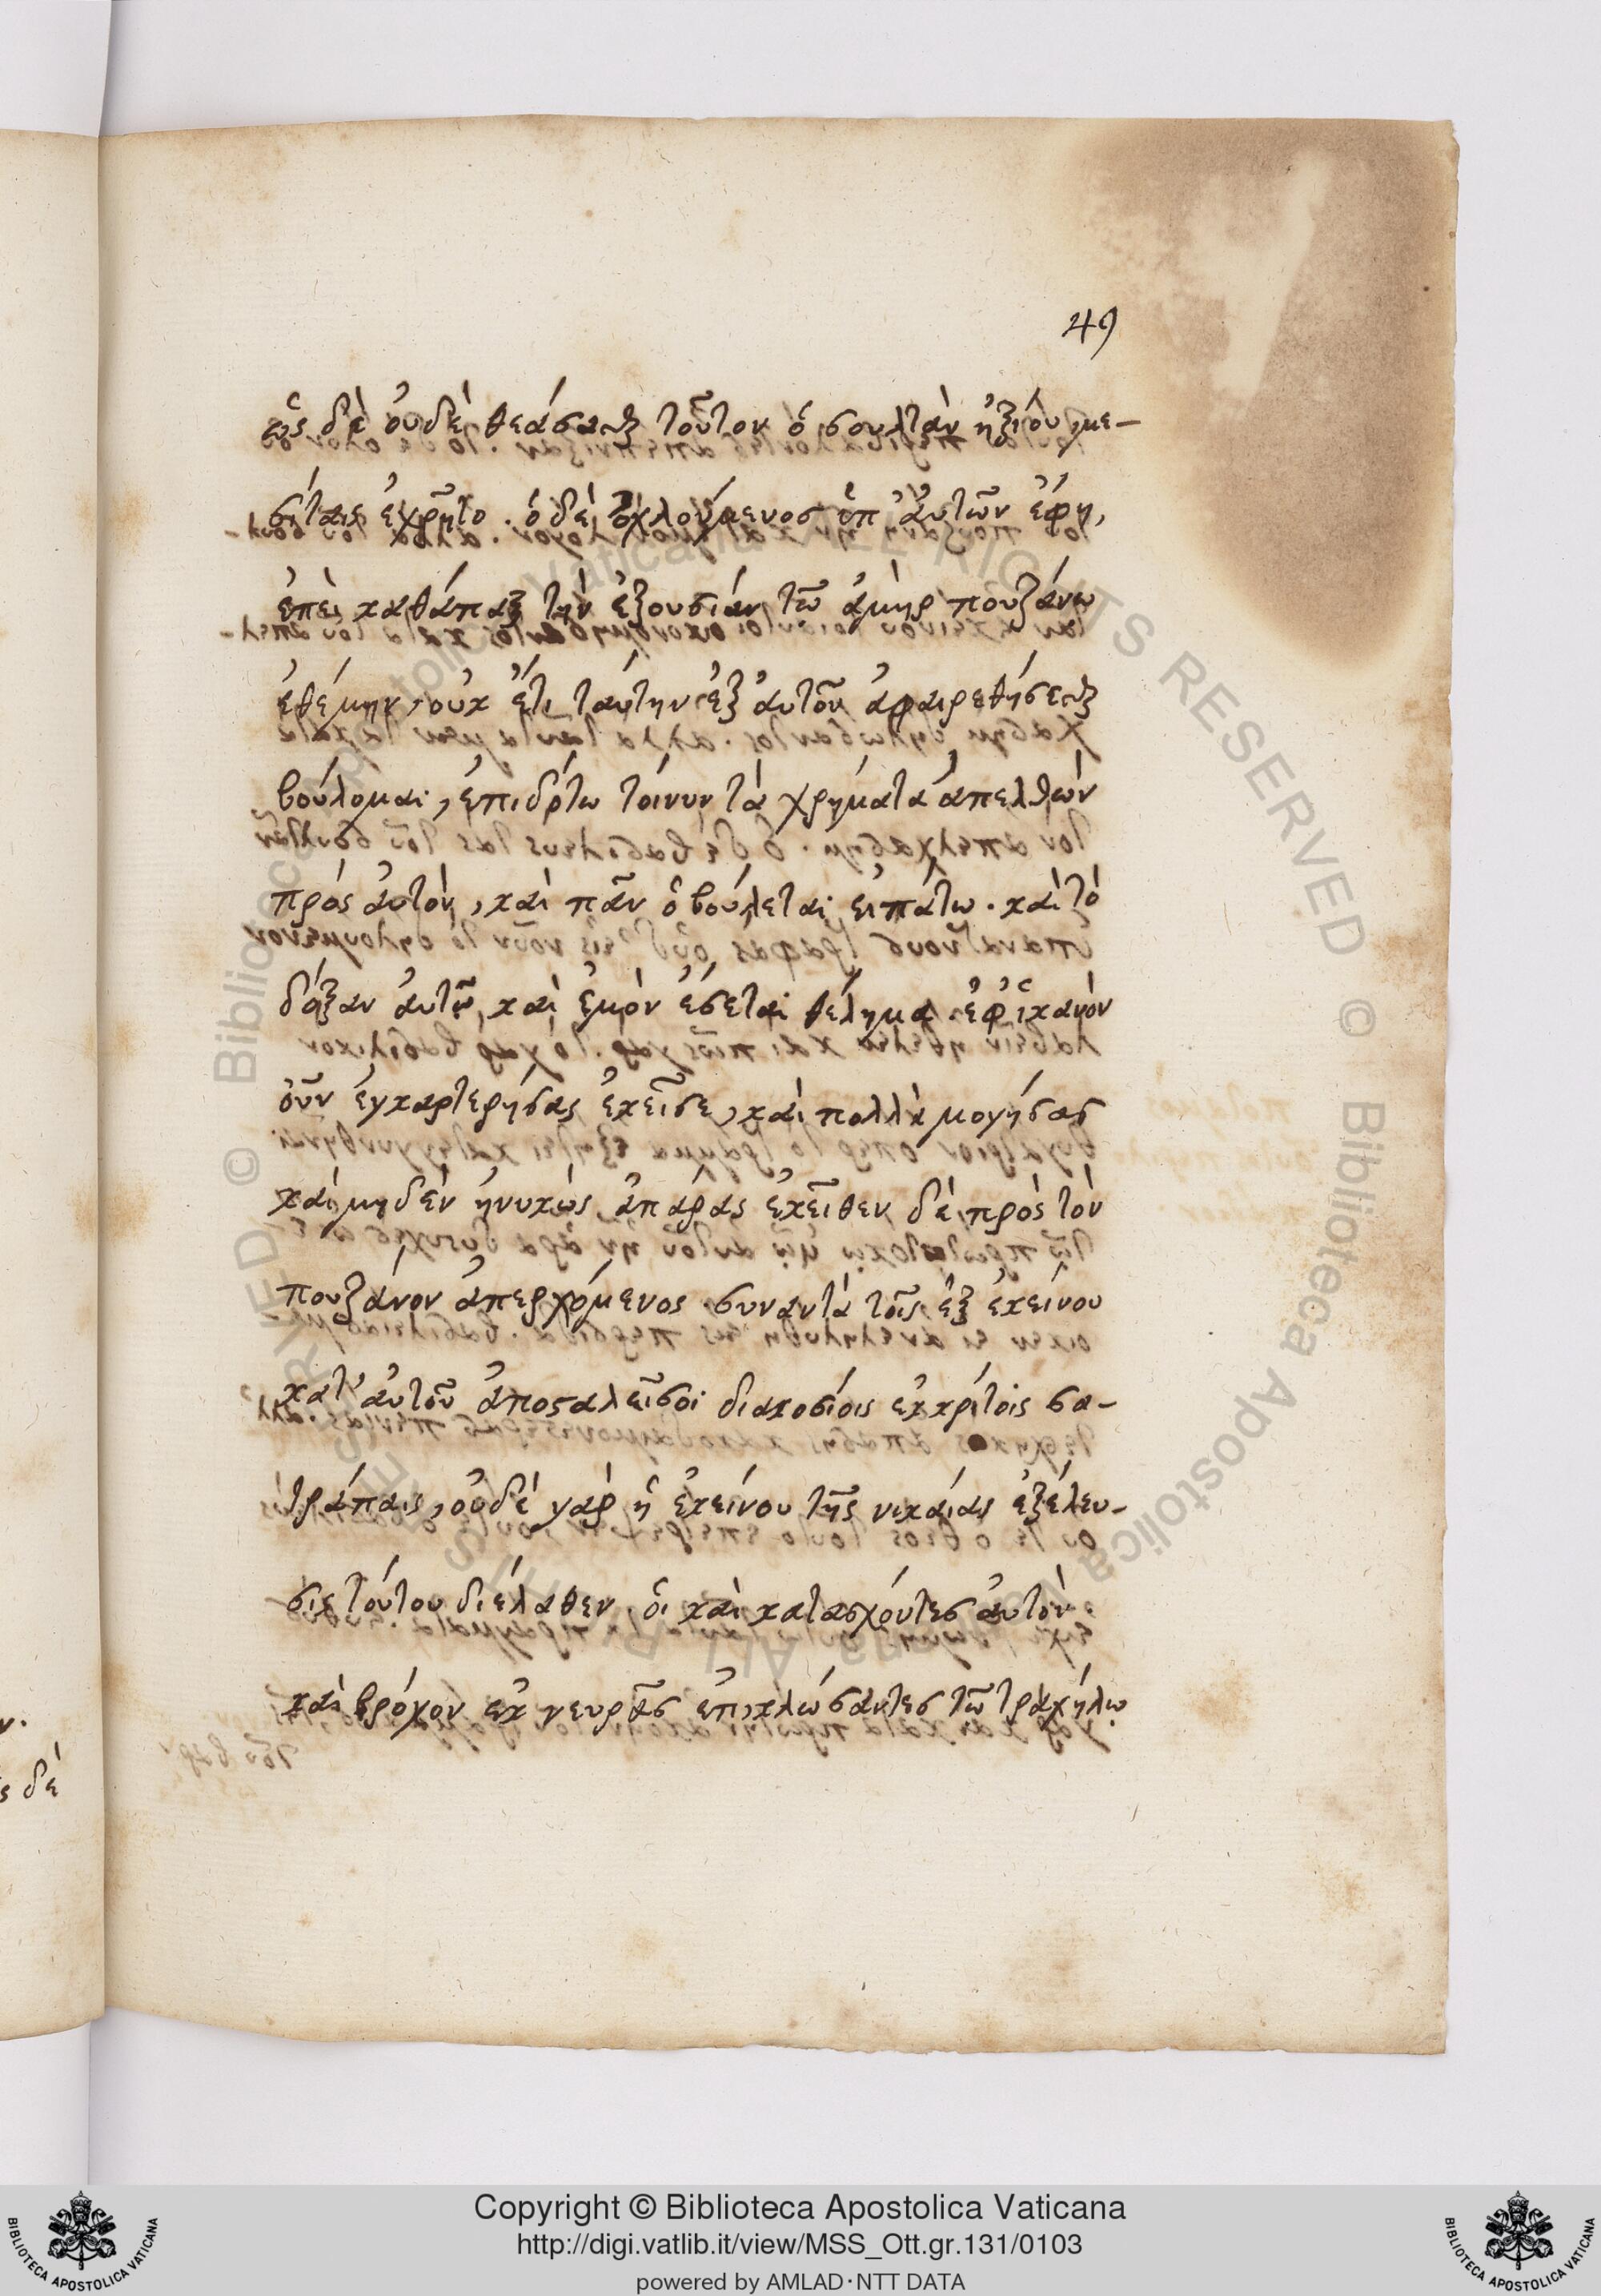 49
ὡς δὲ οὐδὲ θεάσασθαι τοῦτον ὁ σουλτὰν ἠξίου, με-
σίταις ἐχρῆτο. ὁ δὲ ὀχλούμενος ὑπ' ἀυτῶν ἔφη,
ἐπεὶ καθάπαξ τὴν ἐξουσίαν τῶ ἀμὴρ πουζάνω
ἐθέμην, οὐκ ἔτι ταύτην ἐξ ἀυτοῦ ἀφαιρεθήσεσθαι
βούλομαι, ἐπιδότω τοίνυν τὰ χρήματα ἀπελθὼν
πρὸς ἀυτὸν, καὶ πᾶν ὁ βούλεται εἰπάτω. καὶ τὸ
δόξαν ἀυτῷ, καὶ ἐμὸν ἔσεται θέλημα. ἐφ' ἱκανὸν
οὖν ἐγκαρτερήσας ἐκεῖσε, καὶ πολλὰ μογήσας
καὶ μηδὲν ἠνυκὼς, ἀπάρας ἐκεῖθεν δὲ πρὸς τὸν
πουζάνον ἀπερχόμενος συναντᾶ τοῖς ἐξ ἐκείνου
κατ' ἀυτοῦ ἀποσταλεῖσοι διακοσίοις ἐκκρίτοις σα-
τράπαις, οὐδὲ γὰρ ἡ ἐκείνου τῆς νικαίας ἐξέλευ-
σις τούτου διέλαθεν. ὁι καὶ κατασχόντες ἀυτὸν
καὶ βρόχον ἐκ νευρᾶς ἐπικλώσαντες τῶ τραχήλω
ν.
ς δὲ
Copyright © Biblioteca Apostolica Vaticana
http://digi.vatlib.it/view/MSS_Ott.gr.131/0103
powered by AMLAD·NTT DATA
BIBLIOTECA APOSTOLICA VATICANA
BIBLIOTECA APOSTOLICA VATICANA